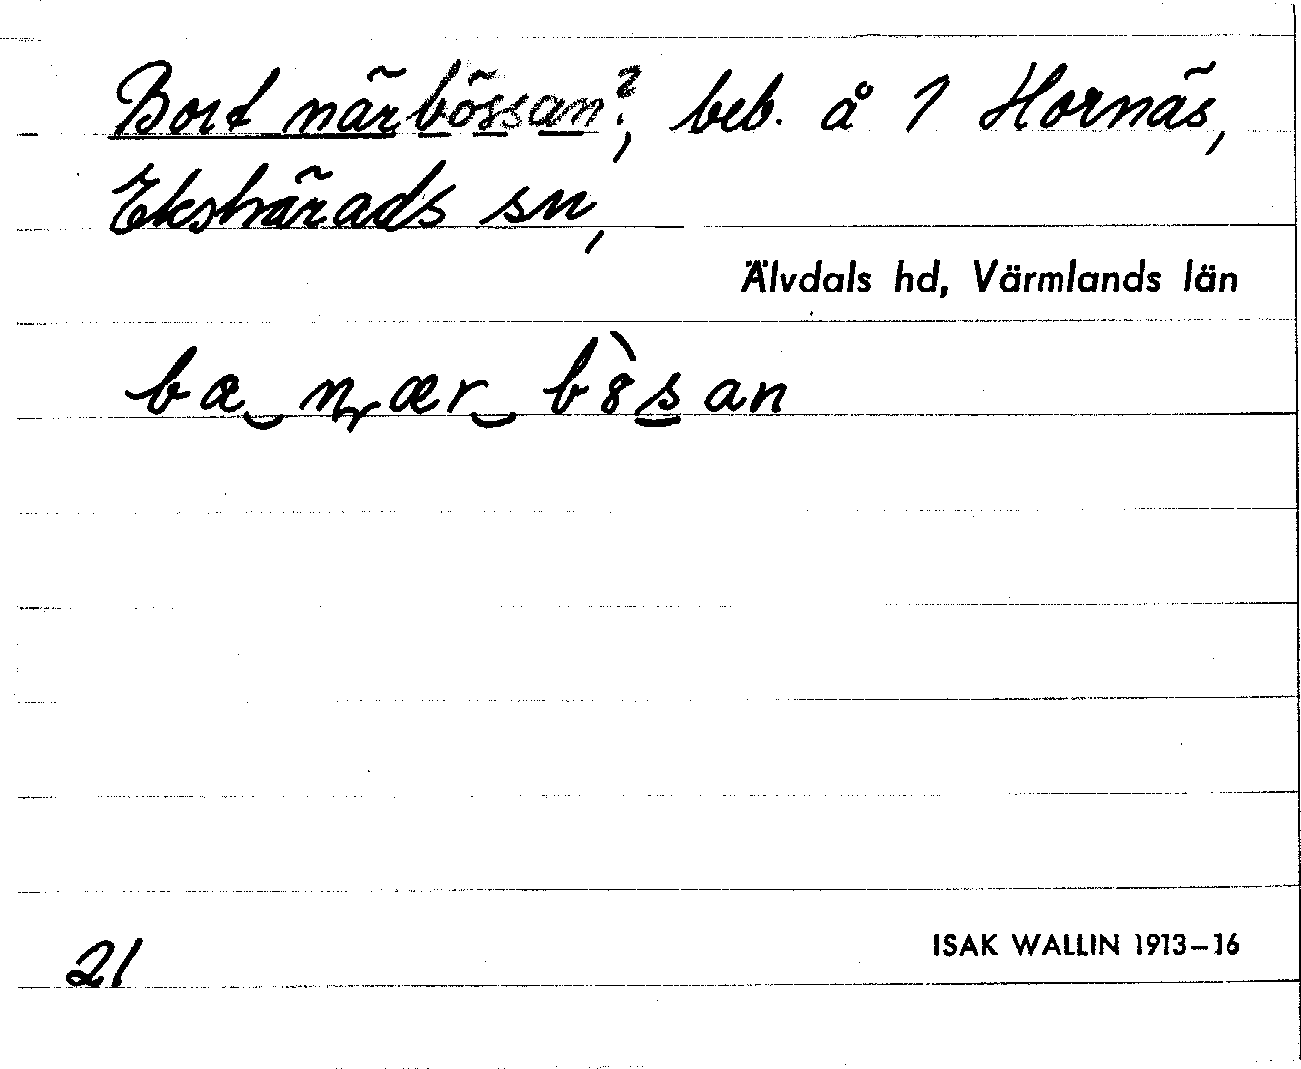 Bort närbössan?, beb. å 1 Hornäs,
Ekshärads sn,
Älvdals hd, Värmlands län
bæ‿n̨ær‿b8̀s̲an
21
ISAK WALLIN 1913–16